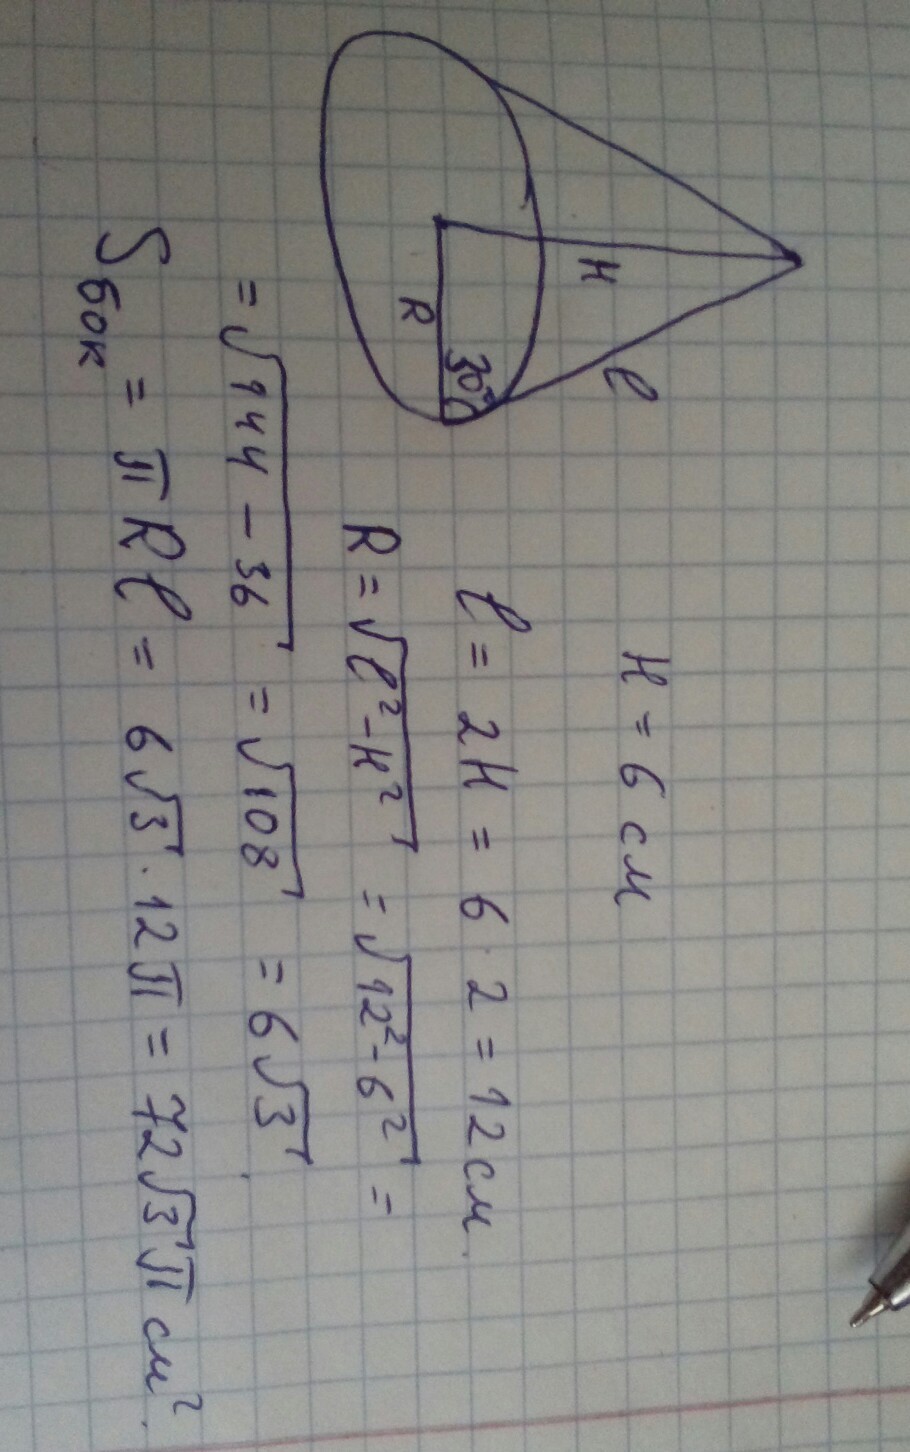 H
l
R
30°
H = 6 см
l = 2H = 6 · 2 = 12 см.
R = √(l² - H²) = √(12² - 6²) =
= √(144 - 36) = √108 = 6√3.
Sбок = πRl = 6√3 · 12π = 72√3π см².